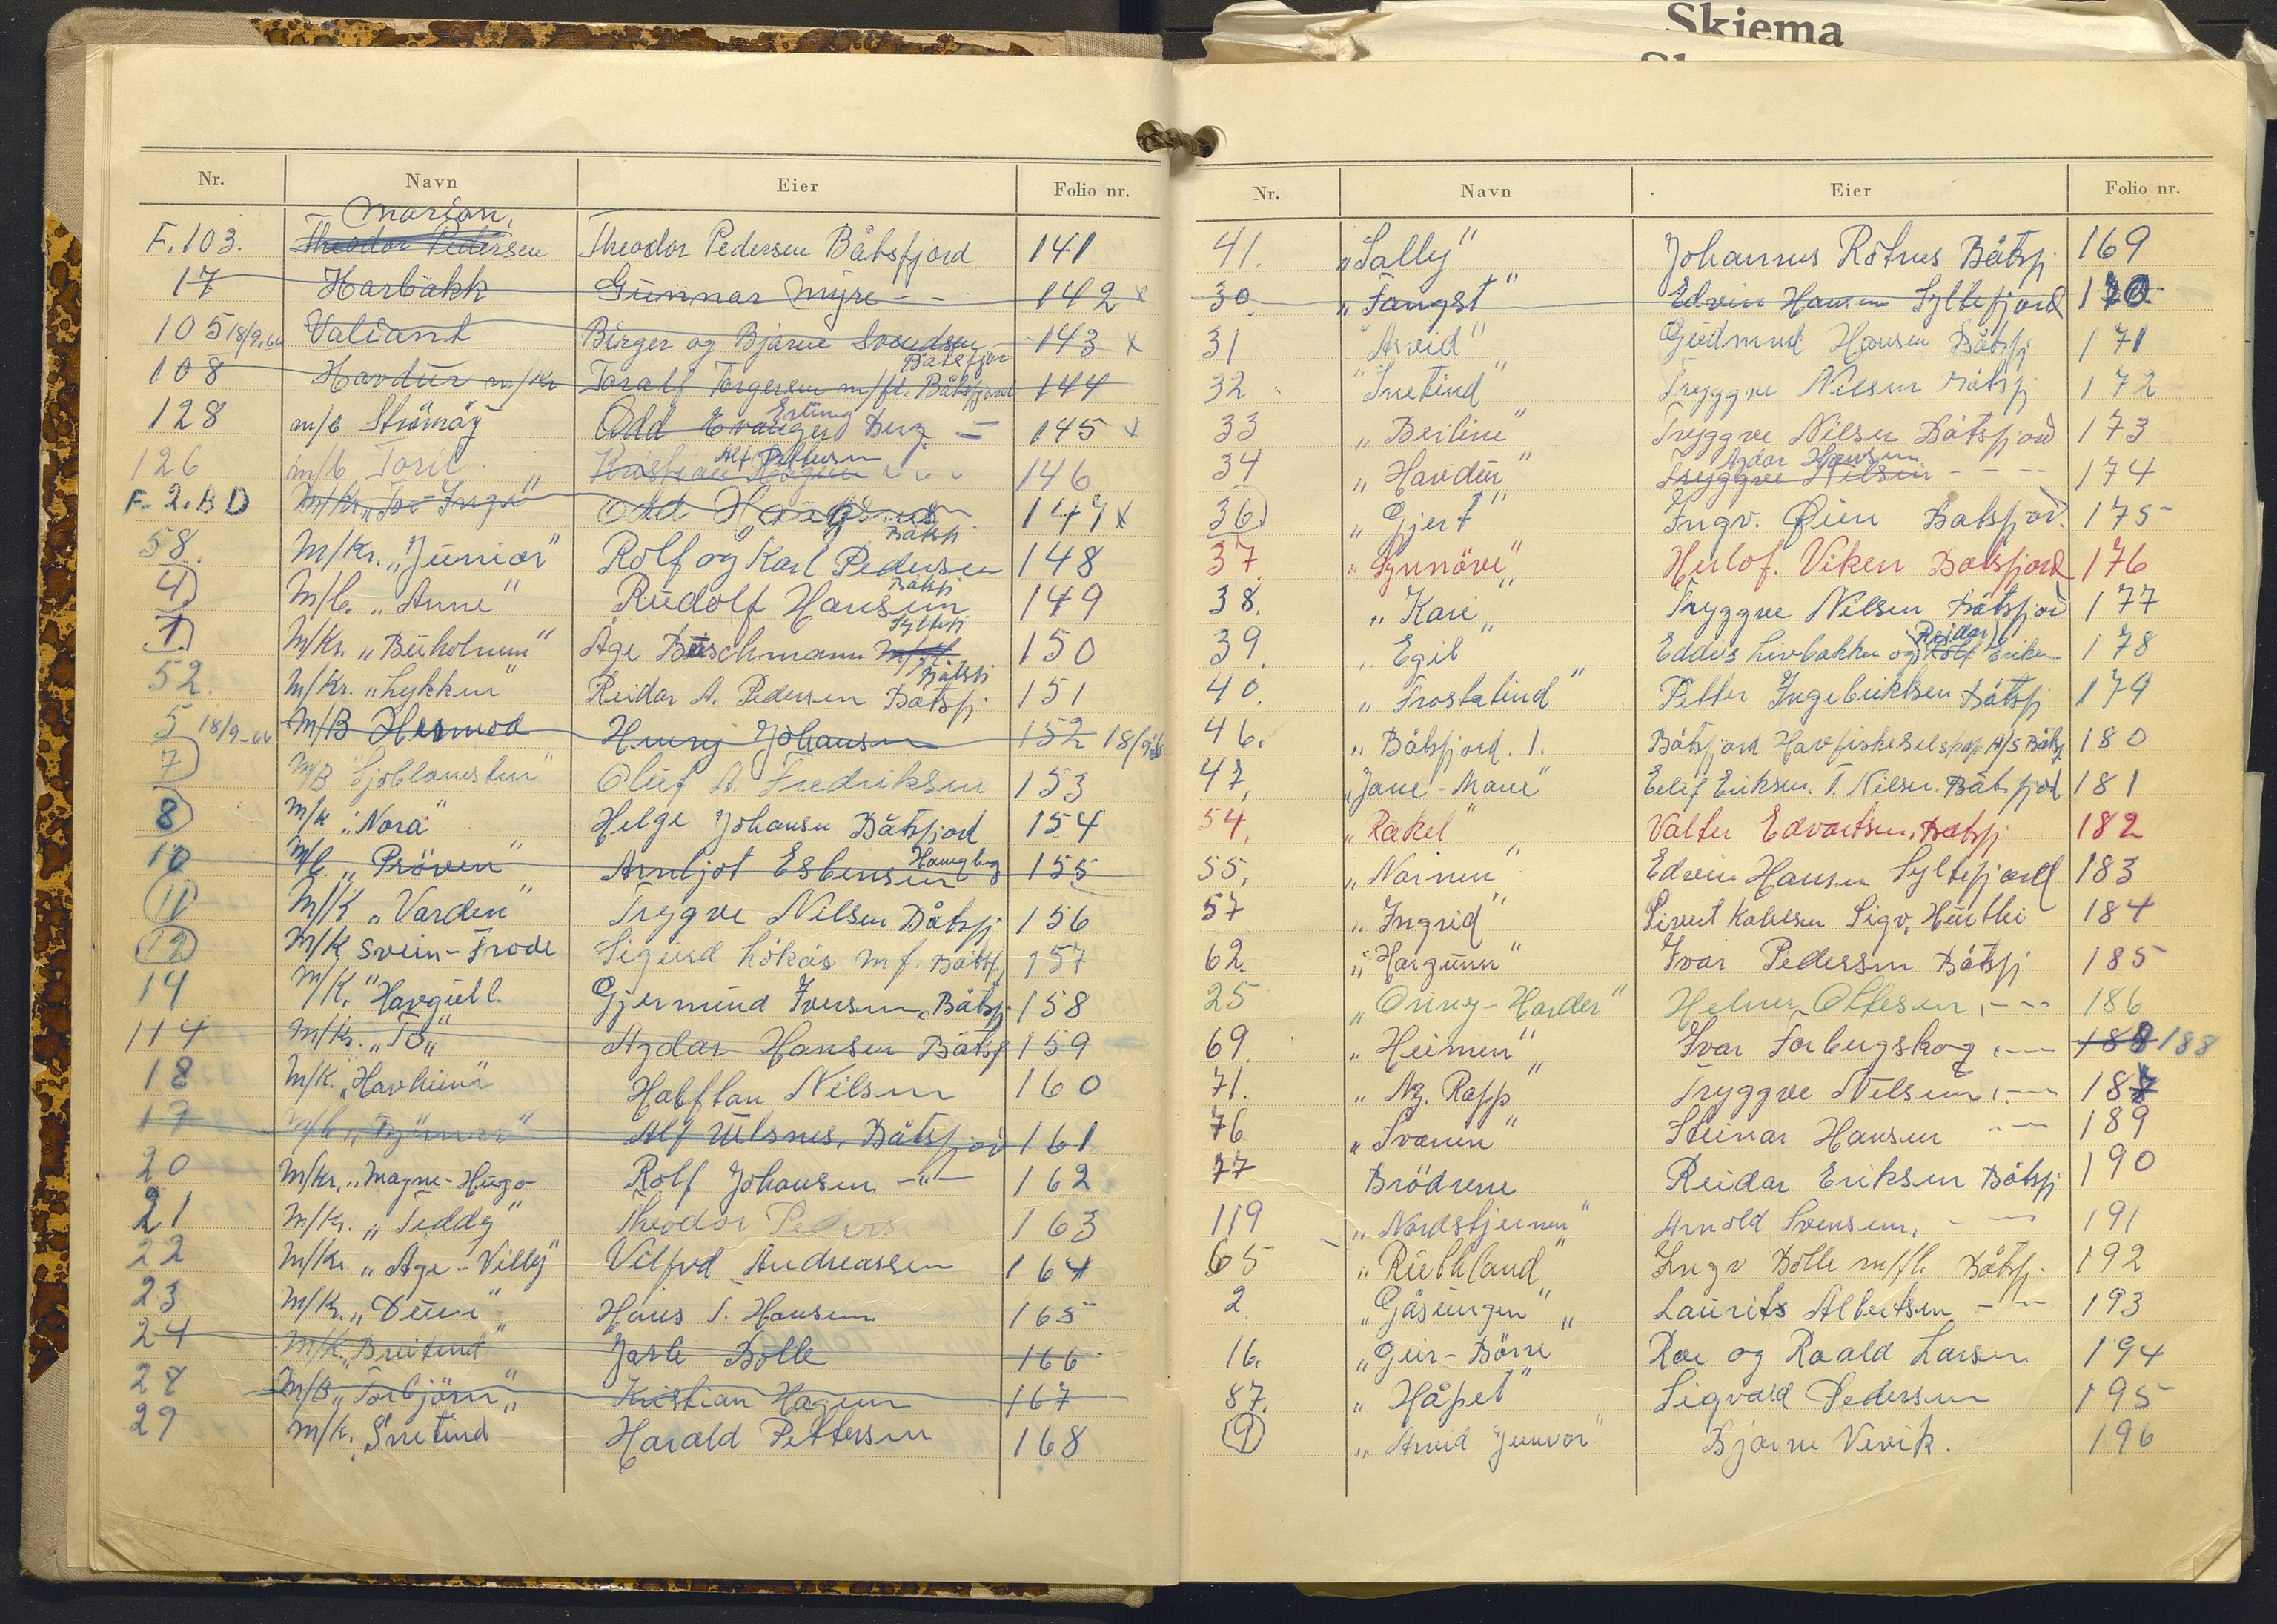 Skjema
Nr. Navn Eier Folio nr.
Marion.
F. 103. Theodor Pedersen Theodor Pedersen Båtsfjord 141
17 Harbakk Gunnar Myre - - 142 x
105 18/9.66 Valiant Birger og Bjarne Svendsen 143 x
Båtsfjor
108 Havdur m/kr Toralf Torgersen m/fl. Båtsfjord 144
Erling
128 m/b Strömöy Odd Berg - 145 x
Alf Pettersen
126 m/b Toril Kristian Hagen 146
F. 2. BD M/kr. Odd 147 x
Båtsfj
58. M/Kr. „Junior" Rolf og Karl Pedersen 148
Båtsfj
4. M/b. „Anne" Rudolf Hansen 149
Syltefj
1. M/Kr. „Buholmen" Åge Buschmann m/fl 150
Båtsfj
52. M/Kr. „Lykken" Reidar A. Pedersen Båtsfj 151
5 18/9-66 M/B Hermod Henry Johansen 152 18/9.66
7 M/B "Sjöblomsten" Oluf A. Fredriksen 153
8 M/k "Nora" Helge Johansen Båtsfjord 154
Hamgberg
10 M/b. „Pröven" Arnljot Esbensen 155
11 M/K „Varden" Trygve Nilsen Båtsfj 156
12 M/K Svein-Frode Sigurd Lökås m f. Båtsfj 157
14 M/K. "Havgull. Gjermund Iversen, Båtsfj 158
114 M/kr. „To„ Agdar Hansen Båtsfj 159
18 M/K. „Havheim" Halftan Nilsen 160
17 M/b Alf Ulsnes, Båtsfjord 161
20 M/kr. „Magne-Hugo Rolf Johansen -"- 162
21 M/Kr. „Teddy" Theodor Peders 163
22 M/Kr „Åge-Villy" Vilfred Andreassen 164
23 M/Kr. „Duen" Hans T. Hansen 165
24 M/K „Breitind" Jarle Bolle 166
27 M/B „Torbjörn„ Kristian Hagen 167
29 M/k. „Snetind Harald Pettersen 168
Nr. Navn Eier Folio nr.
41. „Sally" Johannes Rötnes Båtsfj. 169
30. „Fangst" Edvin Hansen Syltefjord 170
31 "Arvid" Gudmund Hansen Båtsfj 171
32 "Snetind" Tryggve Nilsen Båtsfj 172
33 „Berline" Tryggve Nilsen Båtsfjord 173
Agdar Hansen
34 „Havdur" Tryggve Nilsen - - - 174
36 „Gjert" Ingv. Øien Båtsfjord. 175
37. „Synnöve" Herlof. Viken Båtsfjord 176
38. „Kari" Tryggve Nilsen Båtsfjord 177
Reidar
39. „Egil" Eddvis Livbakken og Rolf Eriksen 178
40. „Frostatind" Petter Ingebriktsen Båtsfj 179
46. „Båtsfjord. 1. Båtsfjord Havfiskeselskap A/S Båtsfj. 180
47, „Jane-Marie" Eilif Eriksen. T. Nilsen. Båtsfjord 181
54. „Rakel" Valter Edvartsen, Båtsfj 182
55, „Nornen" Edvin Hansen Syltefjord 183
57 „Ingrid" Sivert Karlsen Sigv. 184
62. „Havgunn" Ivar Pedersen Båtsfj 185
25 Helmer Ottesen, - - 186
69 „Heimen" Ivar Forbergskog, - - 188 188
71. „Ny. Rapp" Tryggve Nilsen, - - 187
76 „Svanen" Steinar Hansen " - 189
77 Brödrene Reidar Eriksen Båtsfj 190
119 „Nordstjernen" Arnold Svensen, - - 191
65 „Rubbland" Ingv Bolle m/fl. Båtsfj. 192
2. „Gåsungen" Laurits Albertsen - "- 193
16. „Geir-Börre" Roe og Roald Larsen 194
87. „Håpet" Sigvald Pedersen 195
9 „Arvid Gunvor" Bjarne Vevik. 196